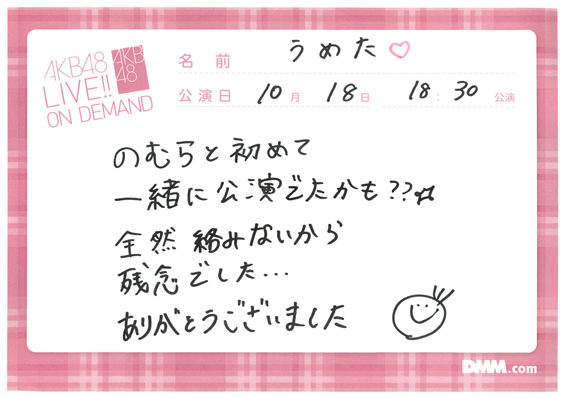 AKB48
LIVE!!
ON DEMAND
AKB
48
名前 うめた♡
公演日 10月 18日 18:30 公演
のむらと初めて
一緒に公演でたかも??☆
全然絡みないから
残念でした...
ありがとうございました
DMM.com